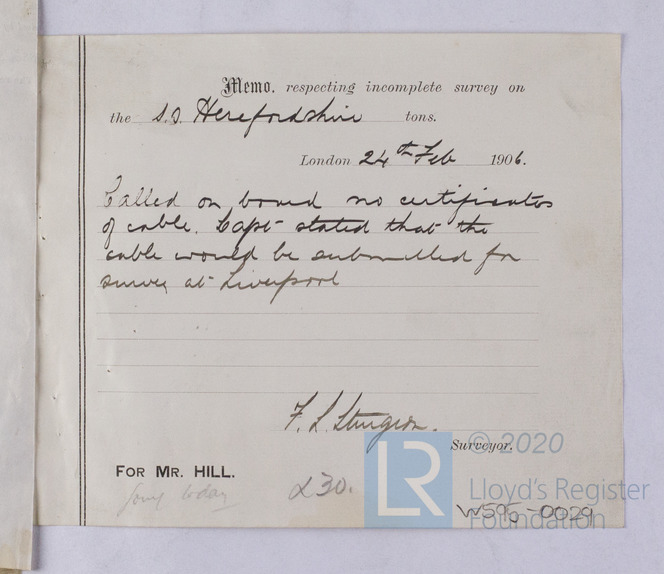 Memo. respecting incomplete survey on
the S.S. Herefordshire tons.
London 24th Feb 1906.
Called on board no certificates
of cable. Capt stated that the
cable would be submitted for
survey at Liverpool
F. L. Sturgeon.
Surveyor.
FOR MR. HILL.
today
£30.
LR
© 2020
Lloyd's Register
Foundation
W595-0029